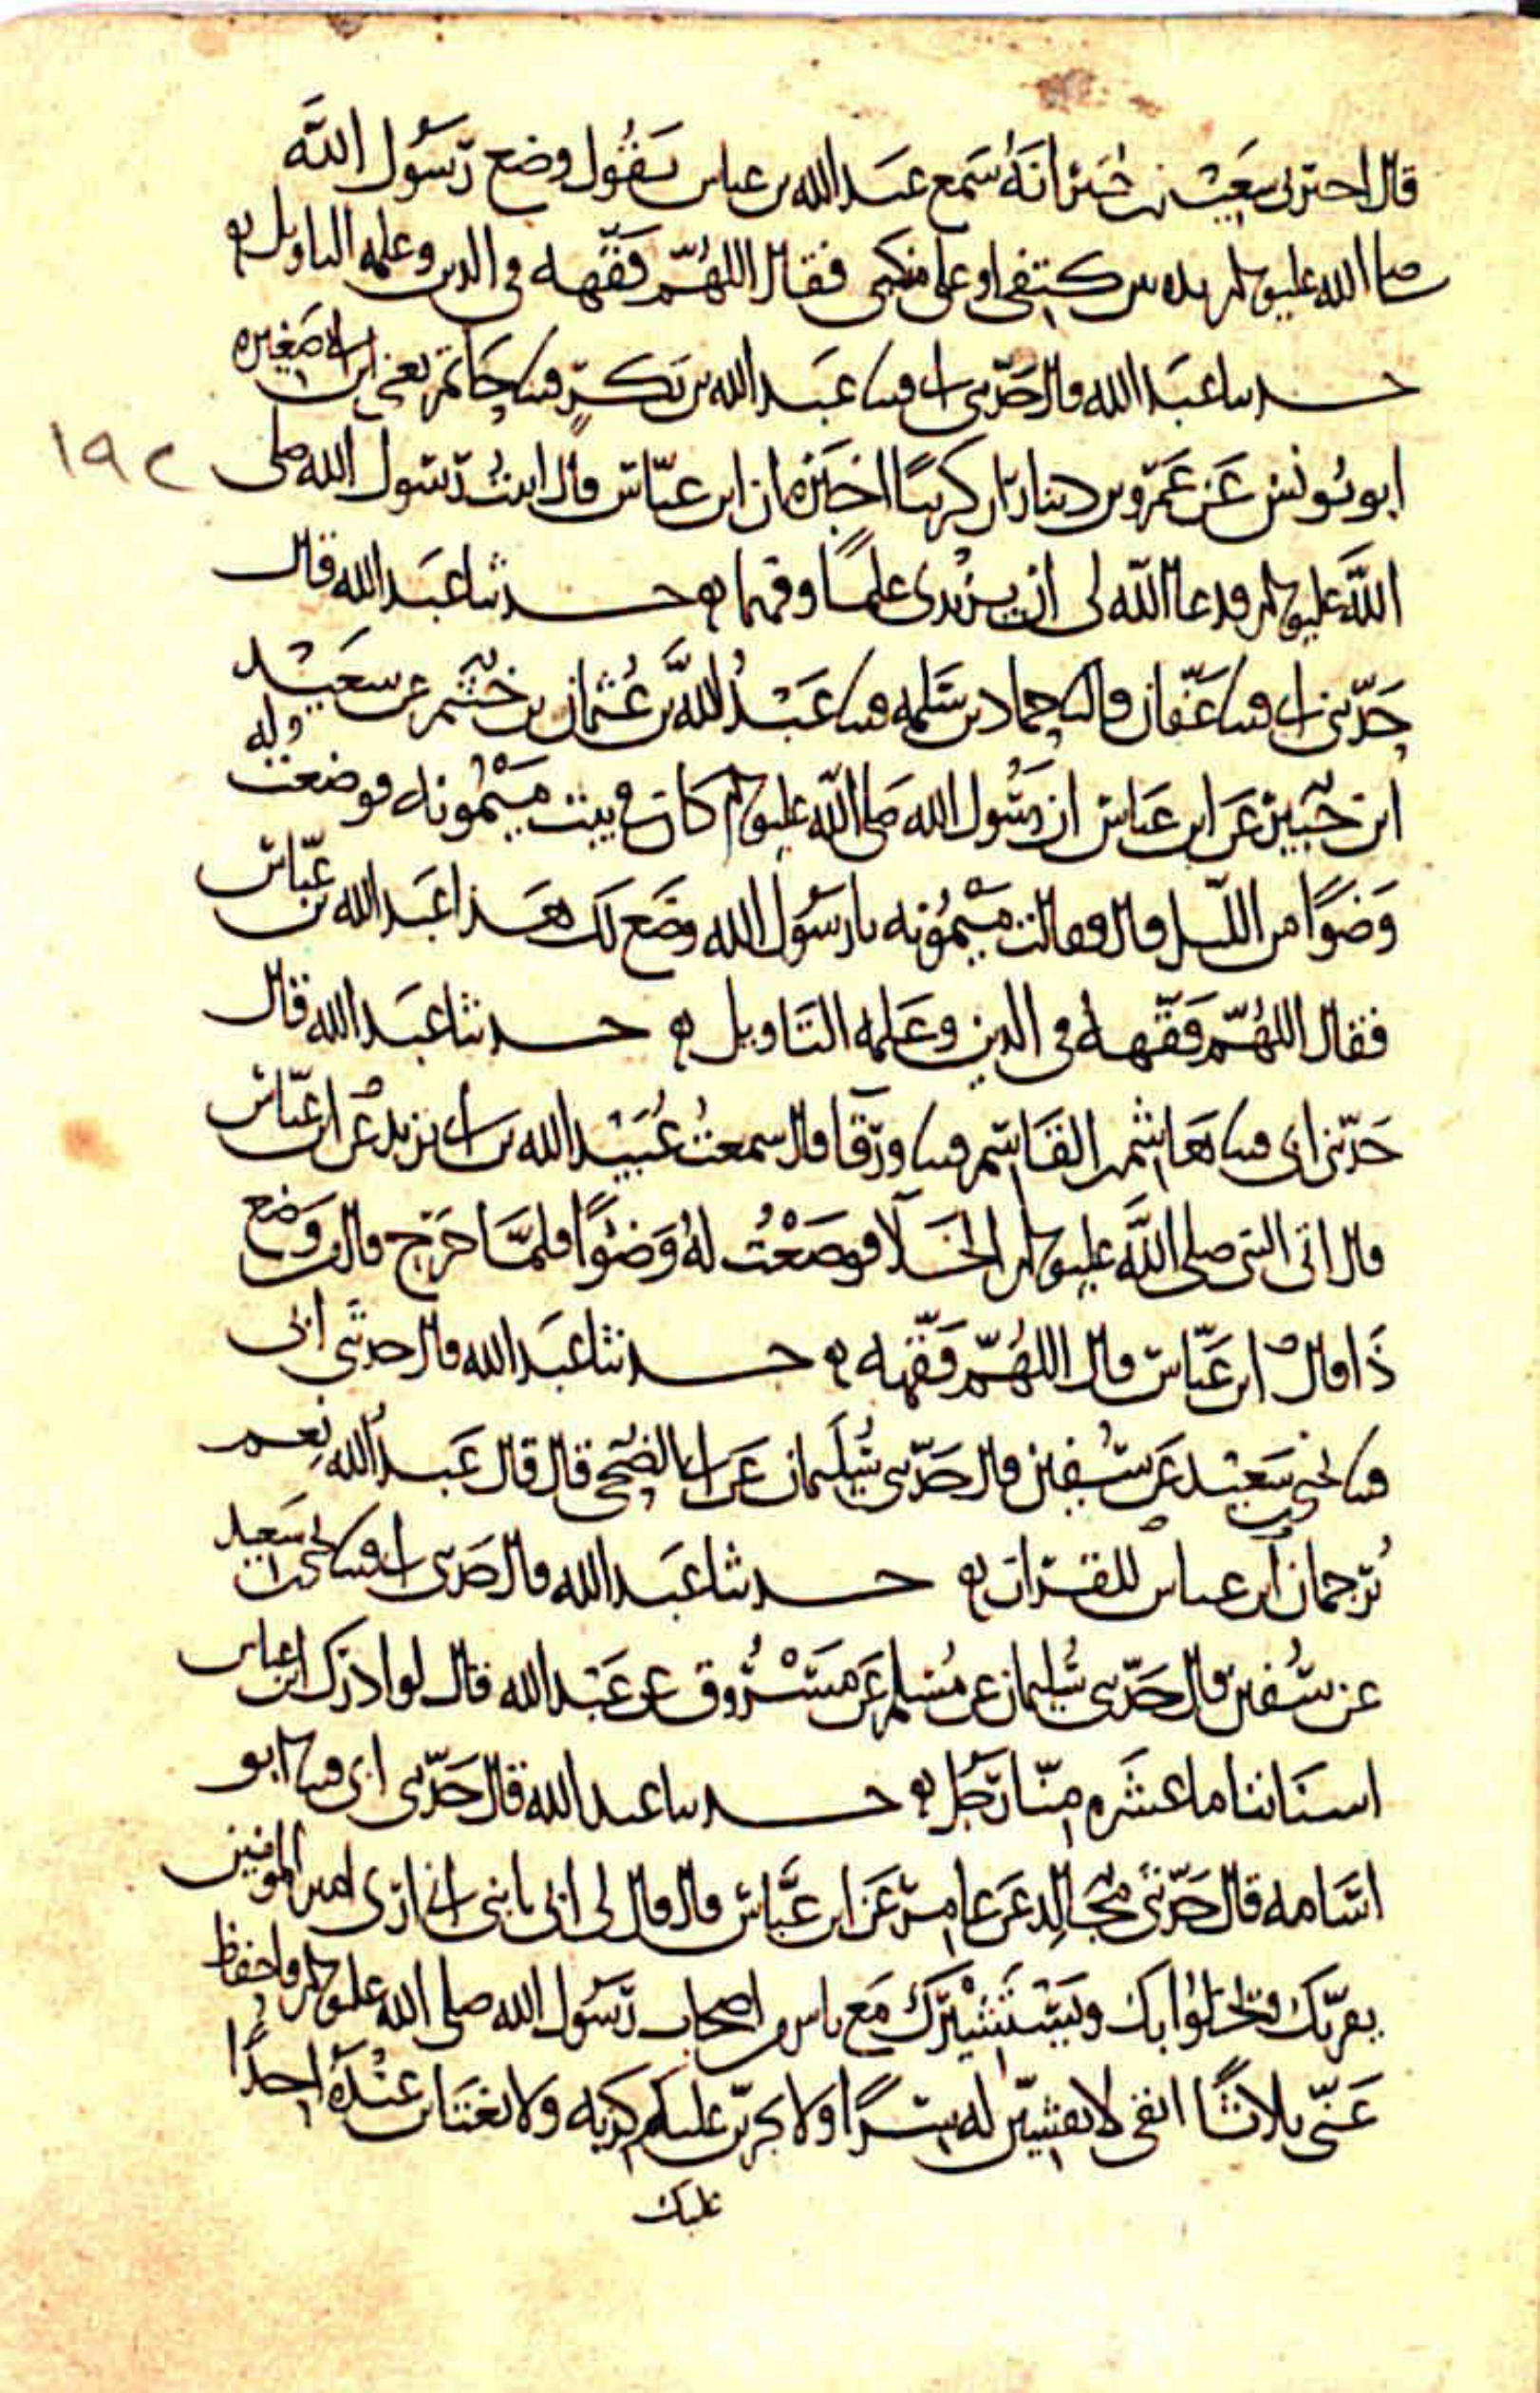 قال اخبرني سعيد بن جبير انه سمع عبد الله بن عباس يقول وضع رسول الله
صلى الله عليه وسلم يده بين كتفي او على منكبي فقال اللهم فقهه في الدين وعلمه التاويل
حدثنا عبد الله قال حدثني ابي قثنا عبد الله بن بكر قثنا حاتم يعني ابن ابي صغيره
ابو يونس عن عمرو بن دينار ان كريبا اخبره ان ابن عباس قال اتيت رسول الله صلى
الله عليه وسلم فدعا الله لي ان يزيدني علما وفهما حدثنا عبد الله قال
حدثني ابي قثنا عفان قال نا حماد بن سلمه قثنا عبد الله بن عثمان بن خثيم عن سعيد
ابن جبير عن ابن عباس ان رسول الله صلى الله عليه وسلم كان في بيت ميمونه فوضعت له
وضوا من الليل قال فقالت ميمونه يا رسول الله وضع لك هذا عبد الله بن عباس
فقال اللهم فقهه في الدين وعلمه التاويل حدثنا عبد الله قال
حدثني ابي قثنا هاشم بن القاسم قثنا ورقا قال سمعت عبيد الله بن ابي يزيد عن ابن عباس
قال اتى النبي صلى الله عليه وسلم الخلا فوضعت له وضوا فلما خرج قال من وضع
ذا قال ابن عباس قال اللهم فقهه حدثنا عبد الله قال حدثني ابي
قثنا يحيى بن سعيد عن سفين قال حدثني سليمان عن ابي الضحى قال قال عبد الله نعم
ترجمان ابن عباس للقران حدثنا عبد الله قال حدثني ابي قثنا يحيى بن سعيد
عن سفين قال حدثني سليمان عن مسلم عن مسروق عن عبد الله قال لو ادرك ابن عباس
اسناننا ما عشره منا رجل حدثنا عبد الله قال حدثني ابي قثنا ابو
اسامه قال حدثني مجالد عن عامر عن ابن عباس قال قال لي ابي يا بني اني ارى امير المومنين
يقربك ويخلوا بك ويستشيرك مع ناس من اصحاب رسول الله صلى الله عليه وسلم فاحفظ
عني ثلاثا اتقي لا تفشين له سرا ولا يجربن عليك كذبه ولا تغتابن عنده احدا
عليك
١٩٢